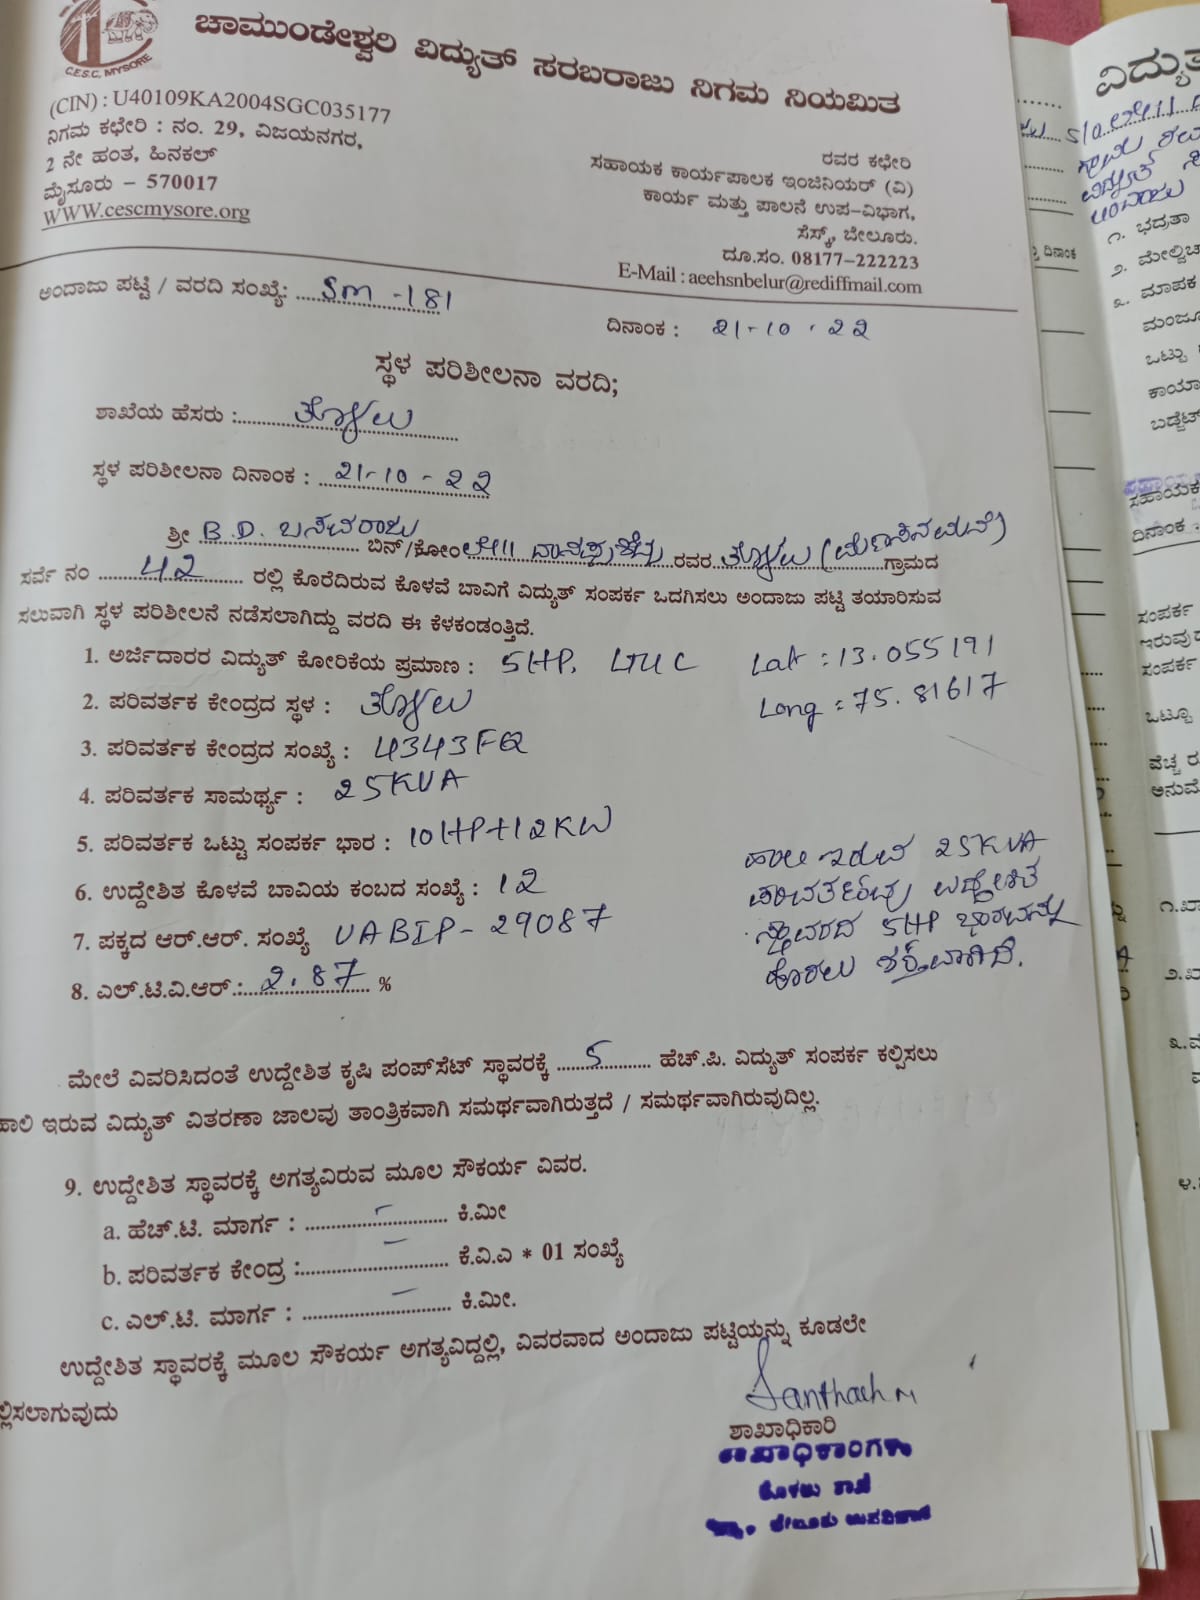 C.E.S.C, MYSORE
ಚಾಮುಂಡೇಶ್ವರಿ ವಿದ್ಯುತ್ ಸರಬರಾಜು ನಿಗಮ ನಿಯಮಿತ
(CIN) : U40109KA2004SGC035177
ನಿಗಮ ಕಛೇರಿ : ನಂ. 29, ವಿಜಯನಗರ,
2 ನೇ ಹಂತ, ಹಿನಕಲ್
ಮೈಸೂರು – 570017
WWW.cescmysore.org
ರವರ ಕಛೇರಿ
ಸಹಾಯಕ ಕಾರ್ಯಪಾಲಕ ಇಂಜಿನಿಯರ್ (ವಿ)
ಕಾರ್ಯ ಮತ್ತು ಪಾಲನೆ ಉಪ–ವಿಭಾಗ,
ಸೆಸ್ಕ್, ಬೇಲೂರು.
ದೂ.ಸಂ. 08177–222223
E-Mail : aeehsnbelur@rediffmail.com
ಅಂದಾಜು ಪಟ್ಟಿ / ವರದಿ ಸಂಖ್ಯೆ: Sm - 181
ದಿನಾಂಕ : 21-10-22
ಸ್ಥಳ ಪರಿಶೀಲನಾ ವರದಿ;
ಶಾಖೆಯ ಹೆಸರು : ತೊಳಲು
ಸ್ಥಳ ಪರಿಶೀಲನಾ ದಿನಾಂಕ : 21-10-22
ಶ್ರೀ B.D. ಬಸವರಾಜು ಬಿನ್/ಕೋಂ ಲೇ|| ರವರ ತೊಳಲು ಗ್ರಾಮದ
ಸರ್ವೆ ನಂ 42 ರಲ್ಲಿ ಕೊರೆದಿರುವ ಕೊಳವೆ ಬಾವಿಗೆ ವಿದ್ಯುತ್ ಸಂಪರ್ಕ ಒದಗಿಸಲು ಅಂದಾಜು ಪಟ್ಟಿ ತಯಾರಿಸುವ
ಸಲುವಾಗಿ ಸ್ಥಳ ಪರಿಶೀಲನೆ ನಡೆಸಲಾಗಿದ್ದು ವರದಿ ಈ ಕೆಳಕಂಡಂತ್ತಿದೆ.
1. ಅರ್ಜಿದಾರರ ವಿದ್ಯುತ್ ಕೋರಿಕೆಯ ಪ್ರಮಾಣ : 5HP, LTUC Lat : 13.055191
2. ಪರಿವರ್ತಕ ಕೇಂದ್ರದ ಸ್ಥಳ : ತೊಳಲು Long : 75.81617
3. ಪರಿವರ್ತಕ ಕೇಂದ್ರದ ಸಂಖ್ಯೆ : 4343FQ
4. ಪರಿವರ್ತಕ ಸಾಮರ್ಥ್ಯ : 25KVA
5. ಪರಿವರ್ತಕ ಒಟ್ಟು ಸಂಪರ್ಕ ಭಾರ : 10HP+12KW
6. ಉದ್ದೇಶಿತ ಕೊಳವೆ ಬಾವಿಯ ಕಂಬದ ಸಂಖ್ಯೆ : 12
7. ಪಕ್ಕದ ಆರ್.ಆರ್. ಸಂಖ್ಯೆ UABIP-29087
8. ಎಲ್.ಟಿ.ವಿ.ಆರ್.: 2.87 %
ಹಾಲಿ ಇರುವ 25KVA
ಪರಿವರ್ತಕವು ಉದ್ದೇಶಿತ
ಸ್ಥಾವರದ 5HP ಭಾರವನ್ನು
ಹೊರಲು ಶಕ್ತವಾಗಿದೆ.
ಮೇಲೆ ವಿವರಿಸಿದಂತೆ ಉದ್ದೇಶಿತ ಕೃಷಿ ಪಂಪ್‌ಸೆಟ್ ಸ್ಥಾವರಕ್ಕೆ 5 ಹೆಚ್.ಪಿ. ವಿದ್ಯುತ್ ಸಂಪರ್ಕ ಕಲ್ಪಿಸಲು
ಹಾಲಿ ಇರುವ ವಿದ್ಯುತ್ ವಿತರಣಾ ಜಾಲವು ತಾಂತ್ರಿಕವಾಗಿ ಸಮರ್ಥವಾಗಿರುತ್ತದೆ / ಸಮರ್ಥವಾಗಿರುವುದಿಲ್ಲ.
9. ಉದ್ದೇಶಿತ ಸ್ಥಾವರಕ್ಕೆ ಅಗತ್ಯವಿರುವ ಮೂಲ ಸೌಕರ್ಯ ವಿವರ.
a. ಹೆಚ್.ಟಿ. ಮಾರ್ಗ : – ಕಿ.ಮೀ
b. ಪರಿವರ್ತಕ ಕೇಂದ್ರ : – ಕೆ.ವಿ.ಎ * 01 ಸಂಖ್ಯೆ
c. ಎಲ್.ಟಿ. ಮಾರ್ಗ : – ಕಿ.ಮೀ.
ಉದ್ದೇಶಿತ ಸ್ಥಾವರಕ್ಕೆ ಮೂಲ ಸೌಕರ್ಯ ಅಗತ್ಯವಿದ್ದಲ್ಲಿ, ವಿವರವಾದ ಅಂದಾಜು ಪಟ್ಟಿಯನ್ನು ಕೂಡಲೇ
ಲ್ಲಿಸಲಾಗುವುದು
Santhosh M
ಶಾಖಾಧಿಕಾರಿ
ಶಾಖಾಧಿಕಾರಿಗಳು
ತೊಳಲು ಶಾಖೆ
ಬೇಲೂರು ಉಪವಿಭಾಗ
ವಿದ್ಯುತ
S/o ಲೇ||
ಗ್ರಾಮ
ವಿದ್ಯುತ್
ದಿನಾಂಕ
೧. ಭದ್ರತಾ
೨. ಮೇಲ್ವಿಚ
೩. ಮಾಪಕ
ಮಂಜೂ
ಒಟ್ಟು
ಕಾರ್ಯಾ
ಬಡ್ಜೆಟ್
ಸಹಾಯಕ
ದಿನಾಂಕ :
ಸಂಪರ್ಕ
ಇರುವುದ
ಸಂಪರ್ಕ
ಒಟ್ಟೂ
ವೆಚ್ಚ ರ
ಅನುಮೆ
೧.ಖಾ
೨.ಖಾ
೩.ಮೆ
೪.